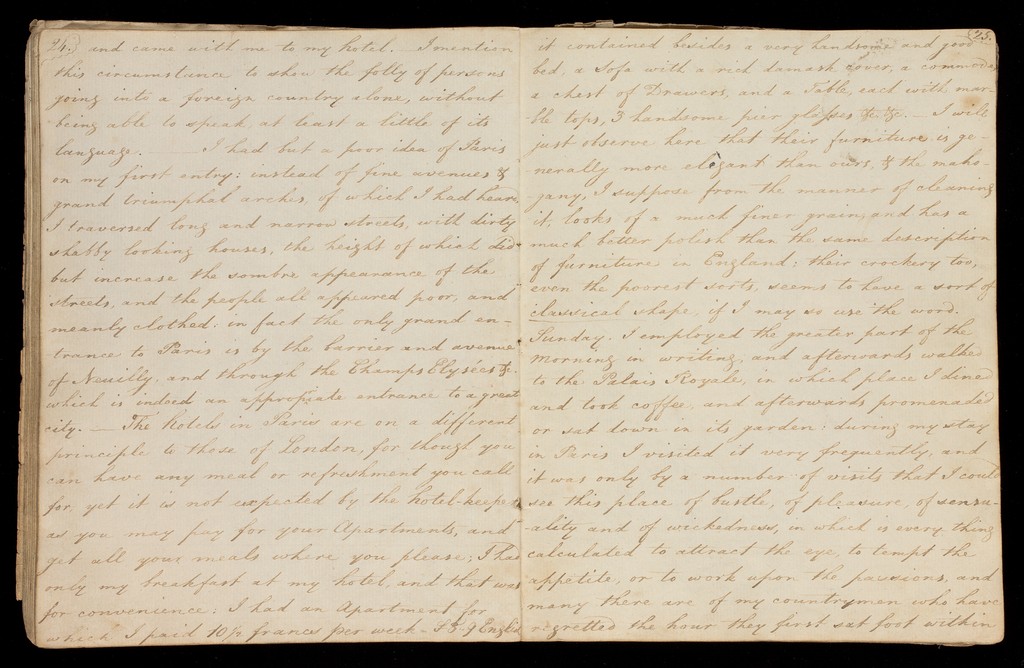 24. and came with me to my hotel. I mention
this circumstance to show the folly of persons
going into a foreign country alone, without
being able to speak, at least a little of its
language. — I had but a poor idea of Paris
on my first entry: instead of fine avenues &
grand triumphal arches, of which I had heard
I traversed long and narrow streets, with dirty
shabby looking houses, the height of which did
but increase the sombre appearance of the
streets, and the people all appeared poor, and
meanly clothed: in fact the only grand en-
trance to Paris is by the barrier and avenue
of Neuilly, and through the Champs Elysées &c.
which is indeed an appropiate entrance to a great
city. — The hotels in Paris are on a different
principle to those of London, for though you
can have any meal or refreshment you call
for, yet it is not expected by the hotel-keepers
as you may pay for your Apartments, and
get all your meals where you please; I had
only my breakfast at my hotel, and that was
for convenience; I had an Apartment for
which I paid 10½ francs per week -
25.
it contained besides a very handsome and good
bed, a Sofa with a rich damask cover, a commode,
a chest of Drawers, and a Table, each with mar-
ble tops, 3 handsome pier glasses &c. &c. — I will
just observe here that their furniture is ge-
nerally more elegant than ours, & the maho-
gany, I suppose from the manner of cleaning
it, looks of a much finer grain, and has a
much better polish than the same description
of furniture in England; their crockery too,
even the poorest sorts, seems to have a sort of
classical shape, if I may so use the word.
Sunday. I employed the greater part of the
morning in writing, and afterwards walked
to the Palais Royale, in which place I dined
and took coffee, and afterwards promenaded
or sat down in its garden: during my stay
in Paris I visited it very frequently, and
it was only by a number of visits that I could
see this place of bustle, of pleasure, of sensu-
ality and of wickedness, in which is every thing
calculated to attract the eye, to tempt the
appetite, or to work upon the passions, and
many there are of my countrymen who have
regretted the hour they first sat foot within